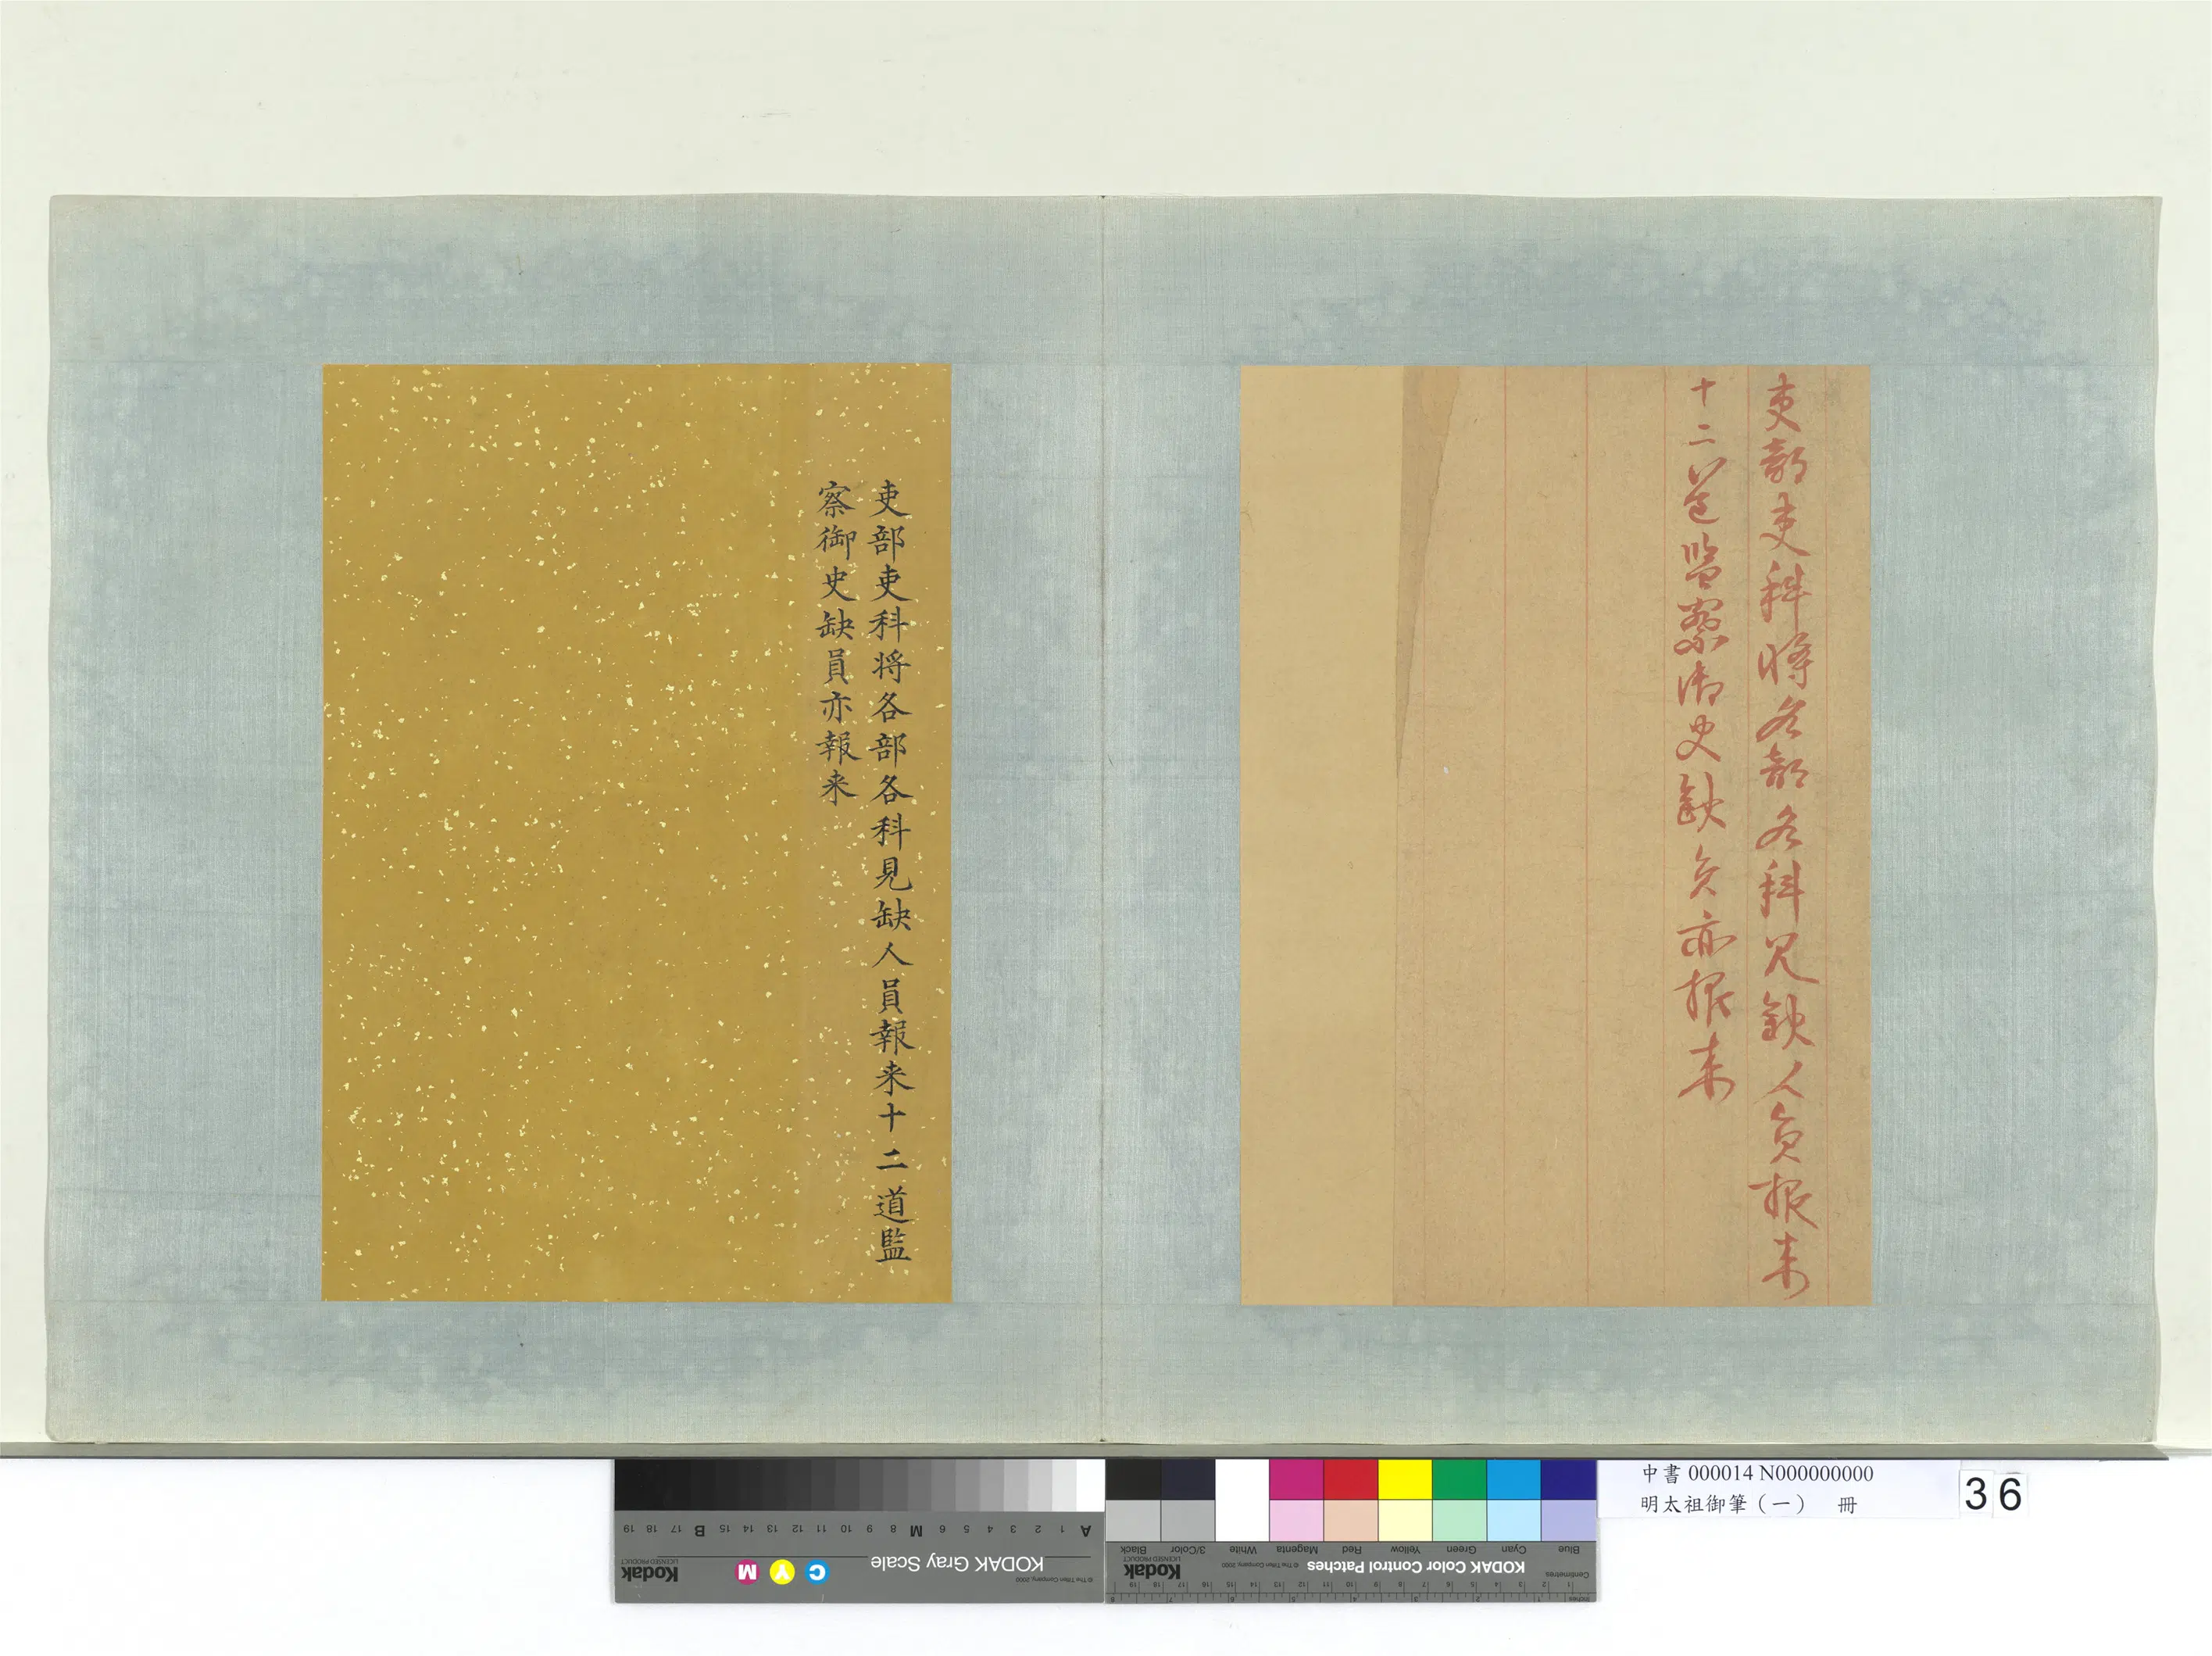 吏部吏科將各部各科見缺人員報来
十二道監察御史缺員亦報来
吏部吏科将各部各科見缺人員報来十二道監
察御史缺員亦報来
中書 000014 N000000000
明太祖御筆（一） 冊
36
A 1 2 3 4 5 6 M 8 9 10 11 12 13 14 15 B 17 18 19
© The Tiffen Company, 2000
KODAK Gray Scale
C Y M
Kodak
LICENSED PRODUCT
Blue Cyan Green Yellow Red Magenta White 3/Color Black
Centimetres
KODAK Color Control Patches
© The Tiffen Company, 2000
Kodak
LICENSED PRODUCT
Inches